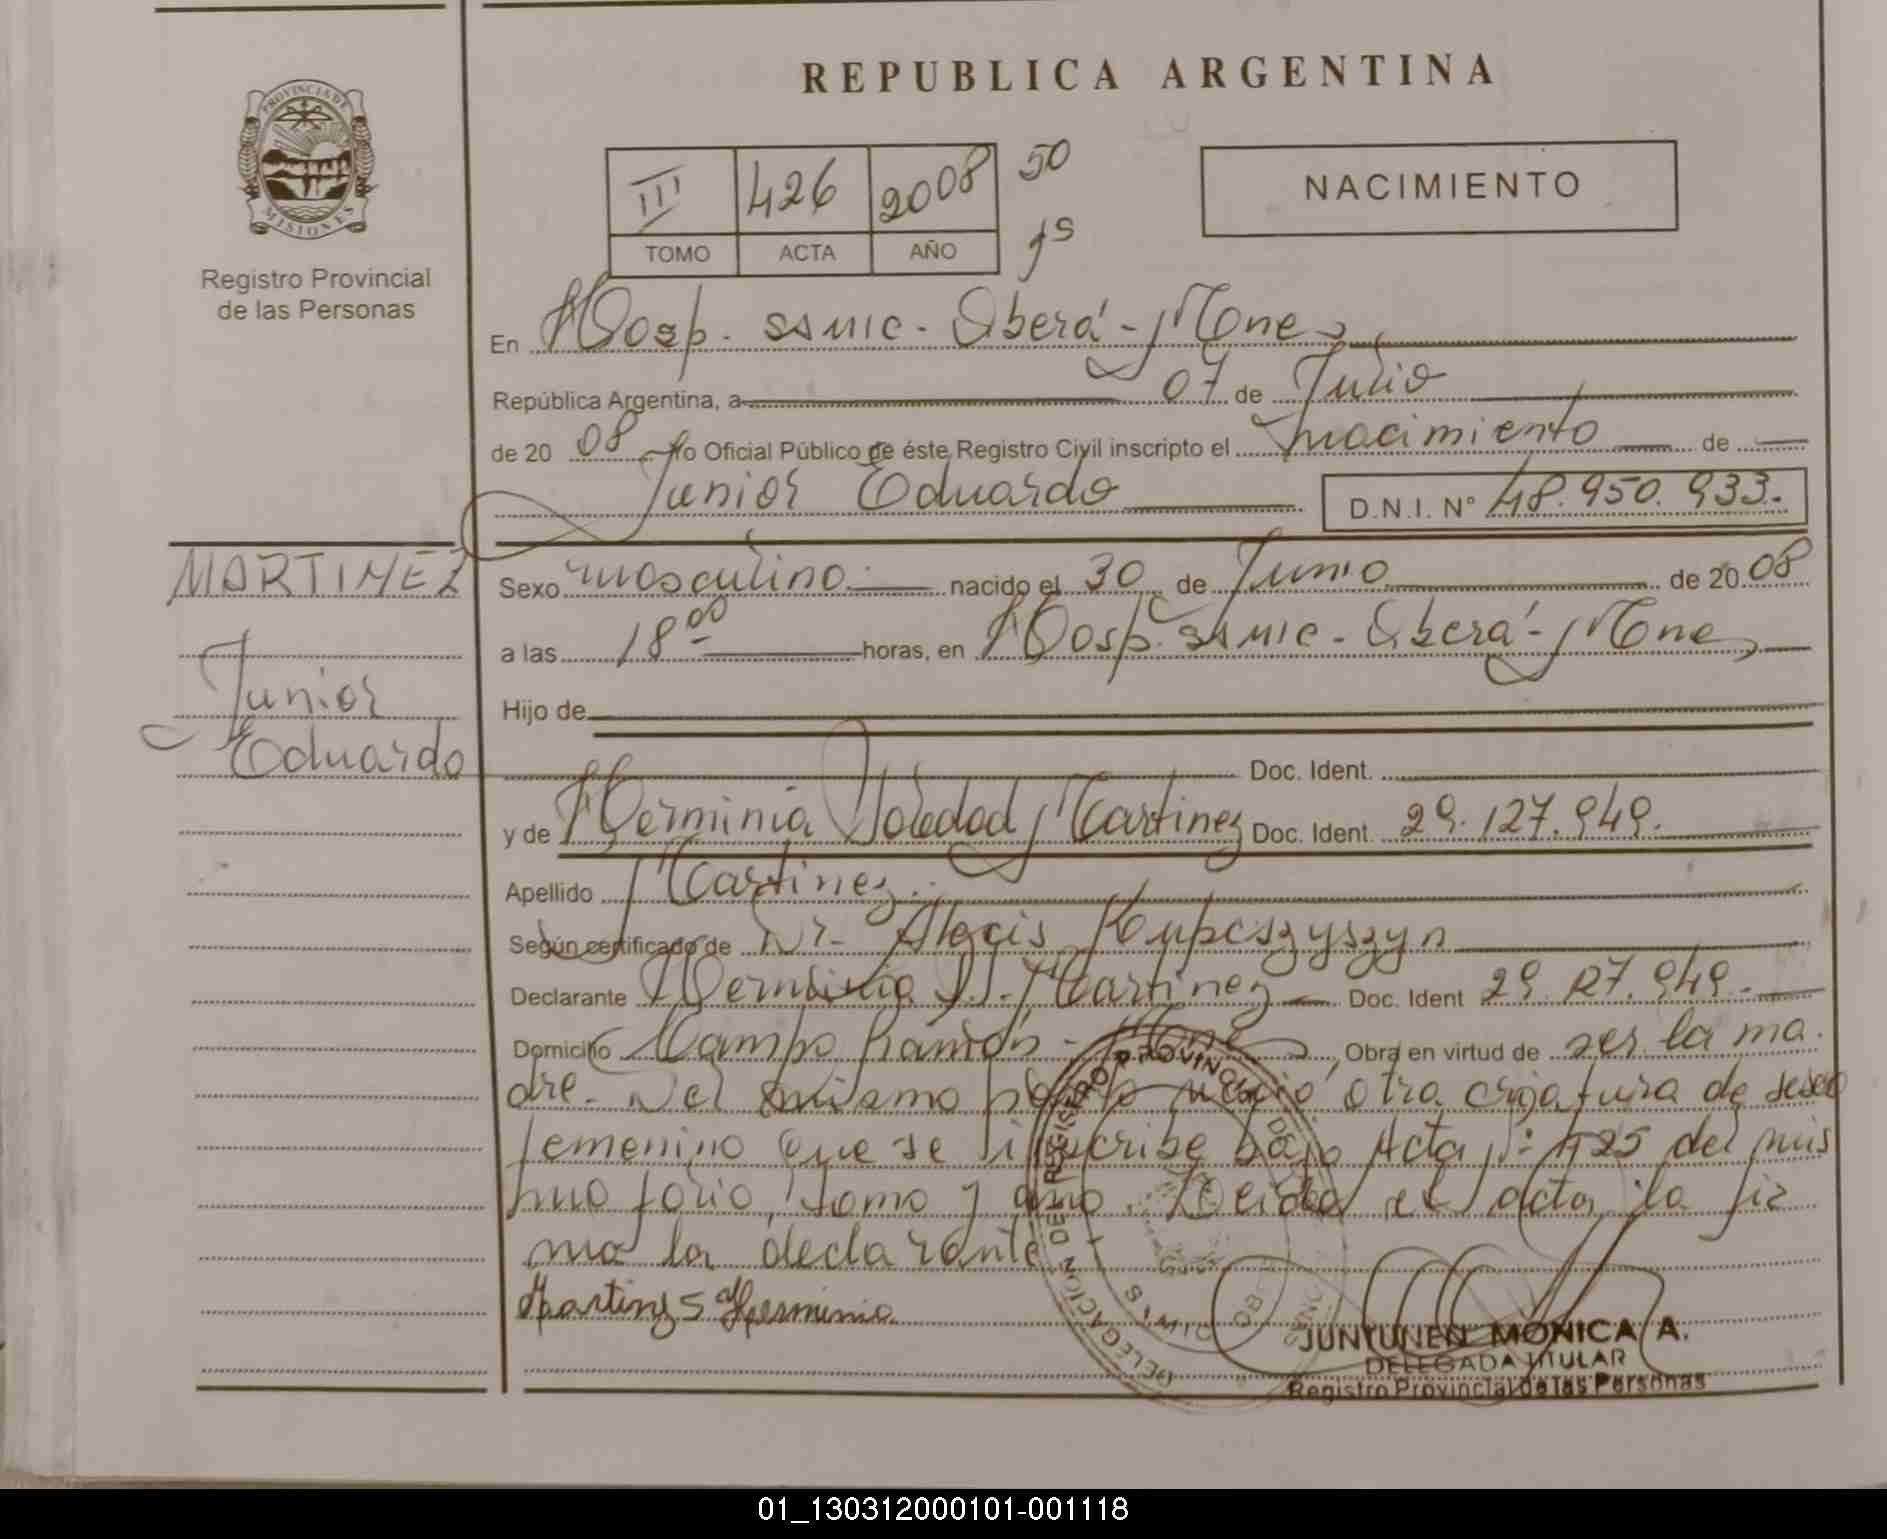 REPUBLICA ARGENTINA
PROVINCIA DE
MISIONES
Registro Provincial
de las Personas
III 426 2008 50
TOMO ACTA AÑO
NACIMIENTO
En Hosp. SAMIC - Oberá - Mnes
República Argentina, a 07 de Julio
de 20 08 Yo Oficial Público de éste Registro Civil inscripto el nacimiento de
Junior Eduardo D.N.I. Nº 48.950.933.
MARTINEZ
Junior
Eduardo
Sexo masculino nacido el 30 de Junio de 20 08
a las 18 00 horas, en Hosp. SAMIC - Oberá - Mnes
Hijo de
Doc. Ident.
y de Herminia Soledad Martinez Doc. Ident. 29.127.949.
Apellido Martinez
Según certificado de Dr. Alexis Kupcszyszyn
Declarante Herminia S. Martinez Doc. Ident 29.127.949.
Domicilio Campo Ramón - Mnes, Obra en virtud de ser la ma
dre. Del mismo parto nació otra criatura de sexo
femenino que se inscribe bajo Acta Nº: 425 del mis
mo folio, tomo y año. Leída el acta, la fir
ma la declarante
Martinez Herminia
DELEGACION DEL REGISTRO PROVINCIAL DE
SAMIC OBERA
JUNTUNEN MONICA A.
DELEGADA TITULAR
Registro Provincial de las Personas
01_130312000101-001118